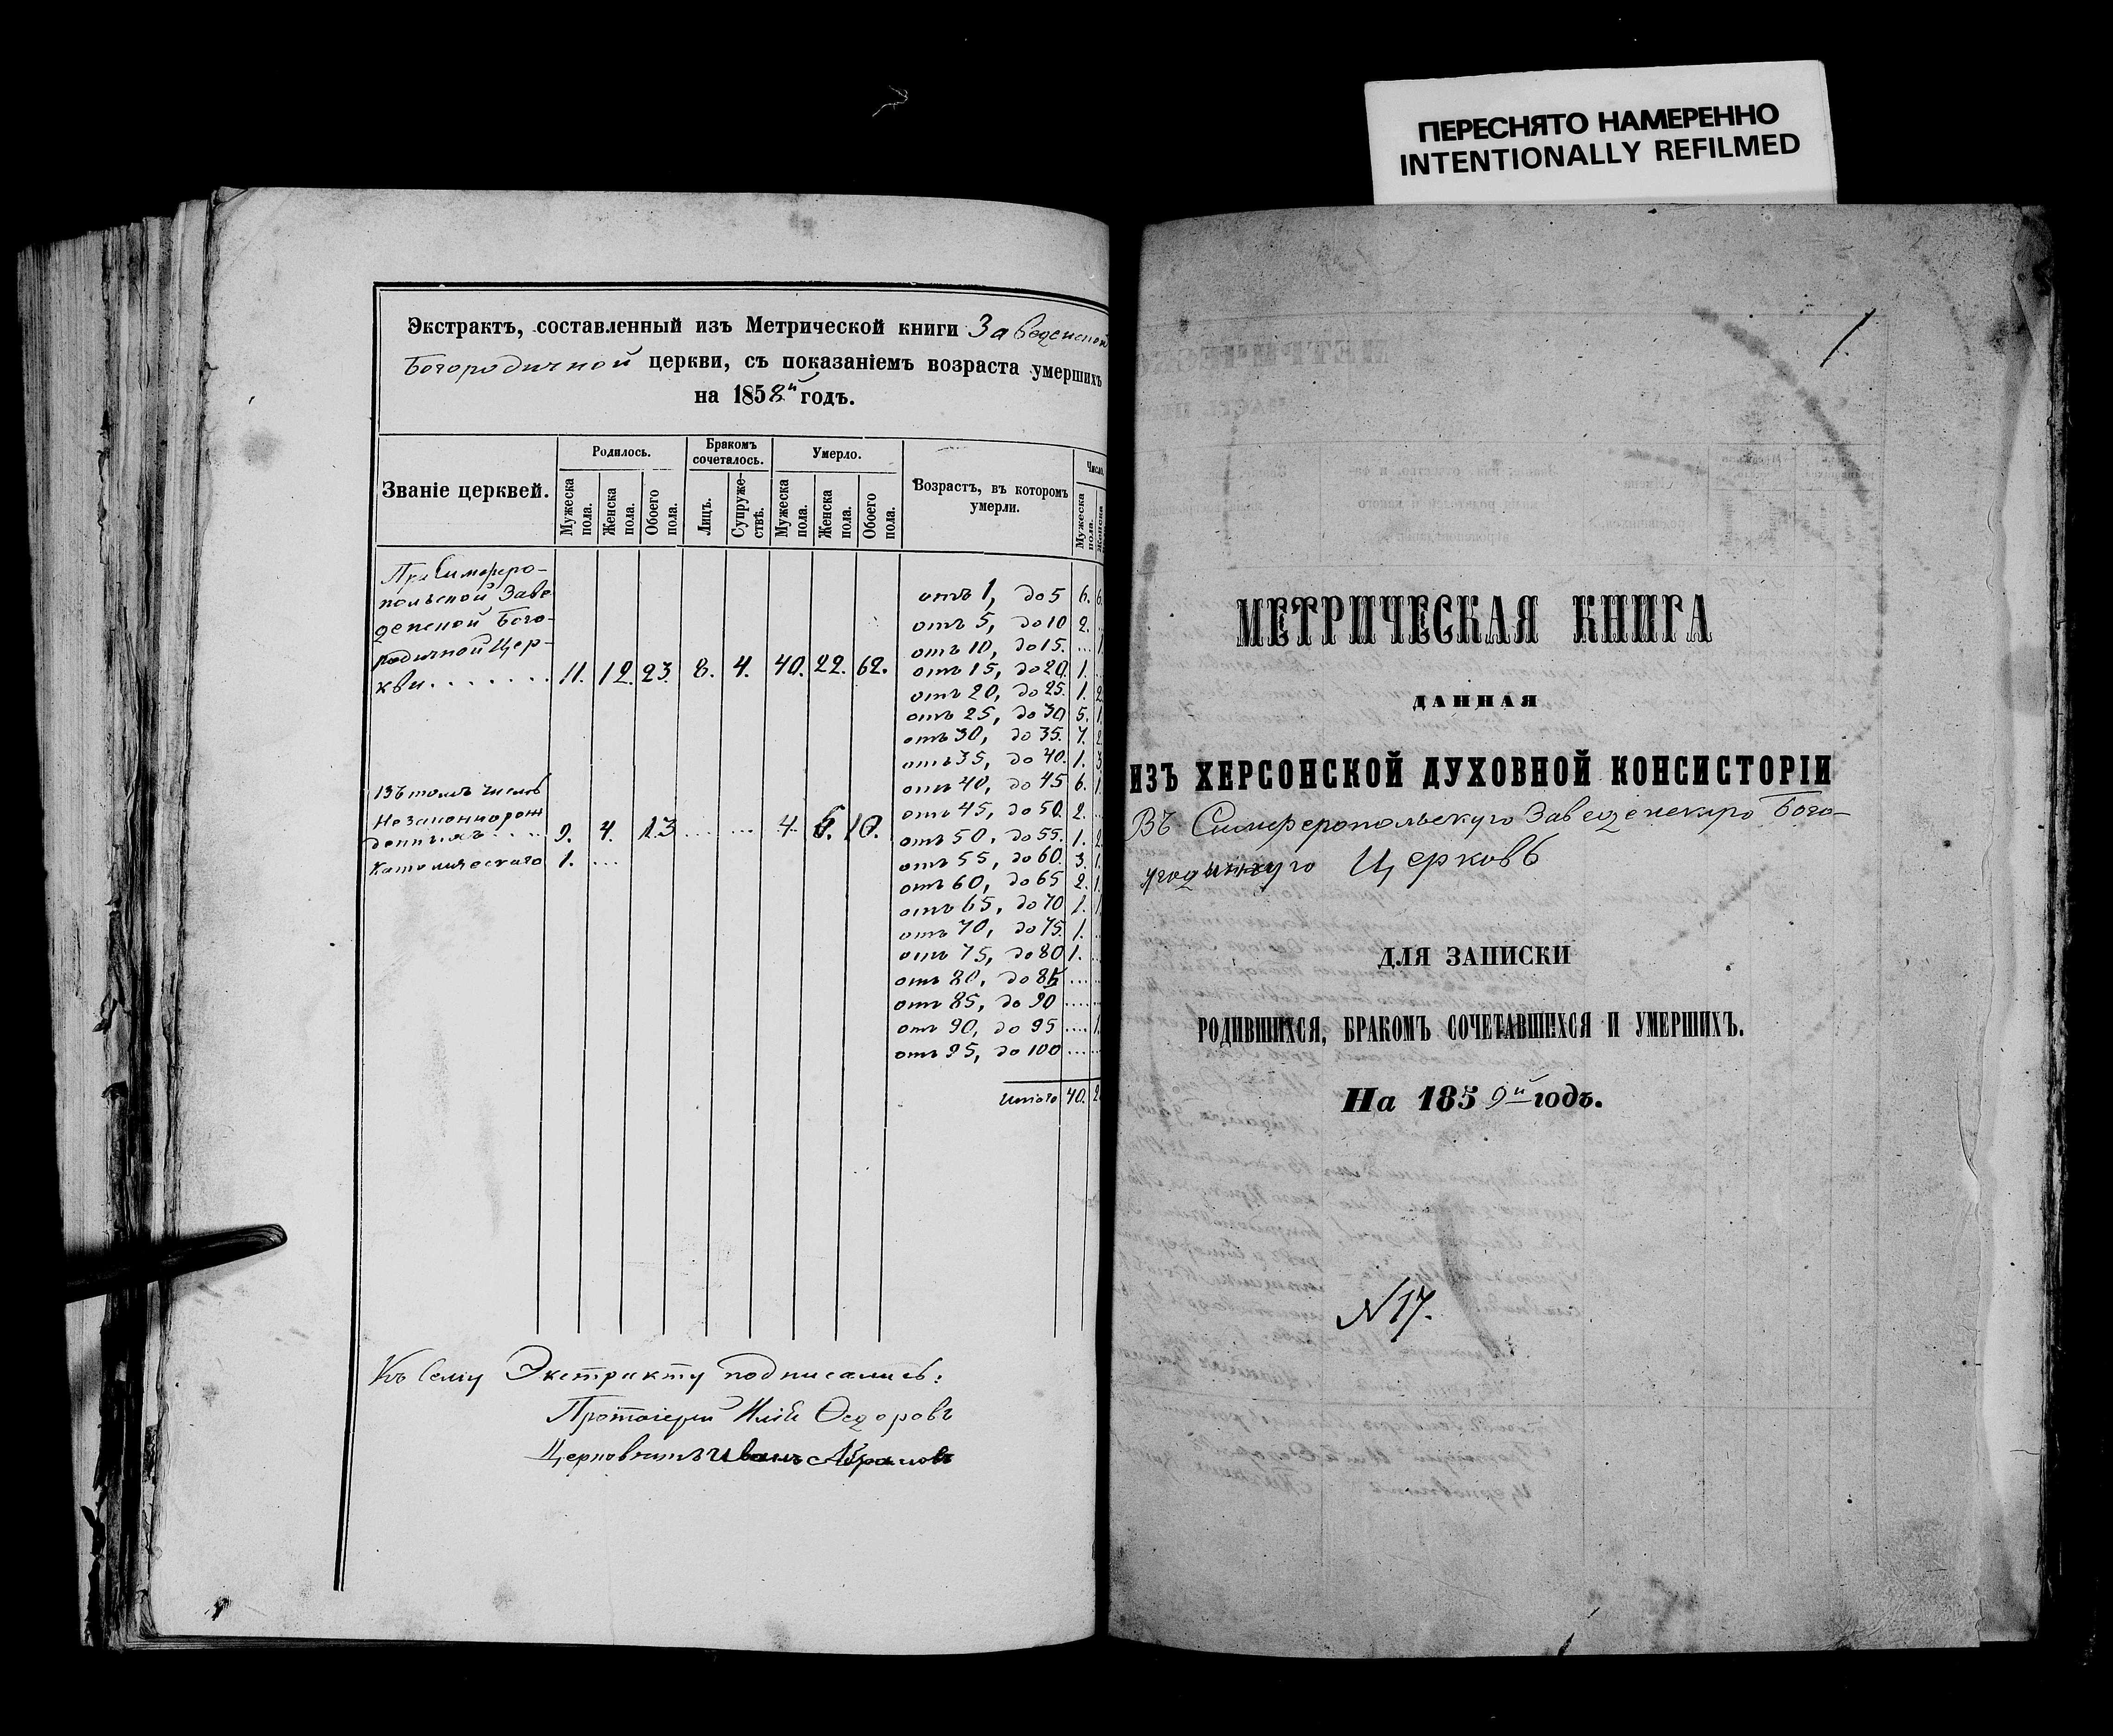 ПЕРЕСНЯТО НАМЕРЕННО
INTENTIONALLY REFILMED
Экстрактъ, составленный изъ Метрической книги Заведенской
Богородичной церкви, съ показаніемъ возраста умершихъ
на 1858й годъ.
Званіе церквей.
Родилось.
Мужеска пола.
Женска пола.
Обоего пола.
Бракомъ сочеталось.
Лицъ.
Супруже-ствѣ.
Умерло.
Мужеска пола.
Женска пола.
Обоего пола.
Возрастъ, въ которомъ умерли.
Число.
Мужеска пола.
Женска
При Симферо-
польской Заве
денской Бого-
родичной Цер-
кви....... 11. 12. 23. 8. 4. 40. 22. 62.
Въ томъ числѣ
Незаконнорож
денныхъ.... 9. 4. 13 ... ... 4. 6. 10.
Католическаго 1. ...
отъ 1, до 5 6. 6.
отъ 5, до 10 2. ..
отъ 10, до 15. ... 1.
отъ 15, до 20. 1. ..
отъ 20, до 25. 1. 2.
отъ 25, до 30 5. 1.
отъ 30, до 35. 7. 2.
отъ 35, до 40. 1. 3.
отъ 40, до 45 6. 1.
отъ 45, до 50. 2. ..
отъ 50, до 55. 1. 2.
отъ 55, до 60. 3. 1.
отъ 60, до 65 2. 1.
отъ 65, до 70 1. 1.
отъ 70, до 75. 1. ..
отъ 75, до 80 1. ..
отъ 80, до 85 ....
отъ 85, до 90 ....
отъ 90, до 95 .... 1.
отъ 95, до 100 ....
Итого 40. 2
Къ Сему Экстракту подписались:
Протоіерей Илія Ѳедоровъ
Церковникъ Иванъ Абрамовъ
1.
МЕТРИЧЕСКАЯ КНИГА
ДАННАЯ
ИЗЪ ХЕРСОНСКОЙ ДУХОВНОЙ КОНСИСТОРІИ
Въ Симферопольскую Бого-
Церковь
ДЛЯ ЗАПИСКИ
РОДИВШИХСЯ, БРАКОМЪ СОЧЕТАВШИХСЯ И УМЕРШИХЪ.
На 1859й годъ.
N 17.